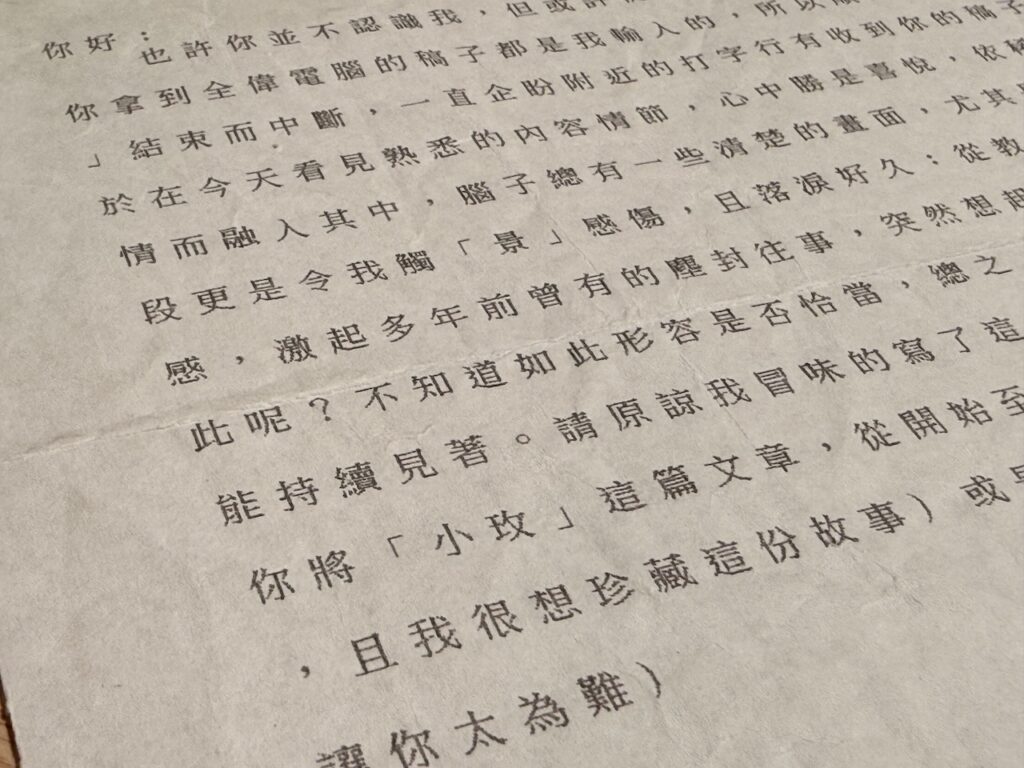 你好：
也許你並不認識我，但或許
你拿到全偉電腦的稿子都是我輸入的，所以
」結束而中斷，一直企盼附近的打字行有收到你的稿子
於在今天看見熟悉的內容情節，心中勝是喜悅，依
情而融入其中，腦子總有一些清楚的畫面，尤其
段更是令我觸「景」感傷，且落淚好久：從教
感，激起多年前曾有的塵封往事，突然想起
此呢？不知道如此形容是否恰當，總之
能持續見著。請原諒我冒味的寫了這
你將「小玫」這篇文章，從開始至
，且我很想珍藏這份故事）或
讓你太為難）